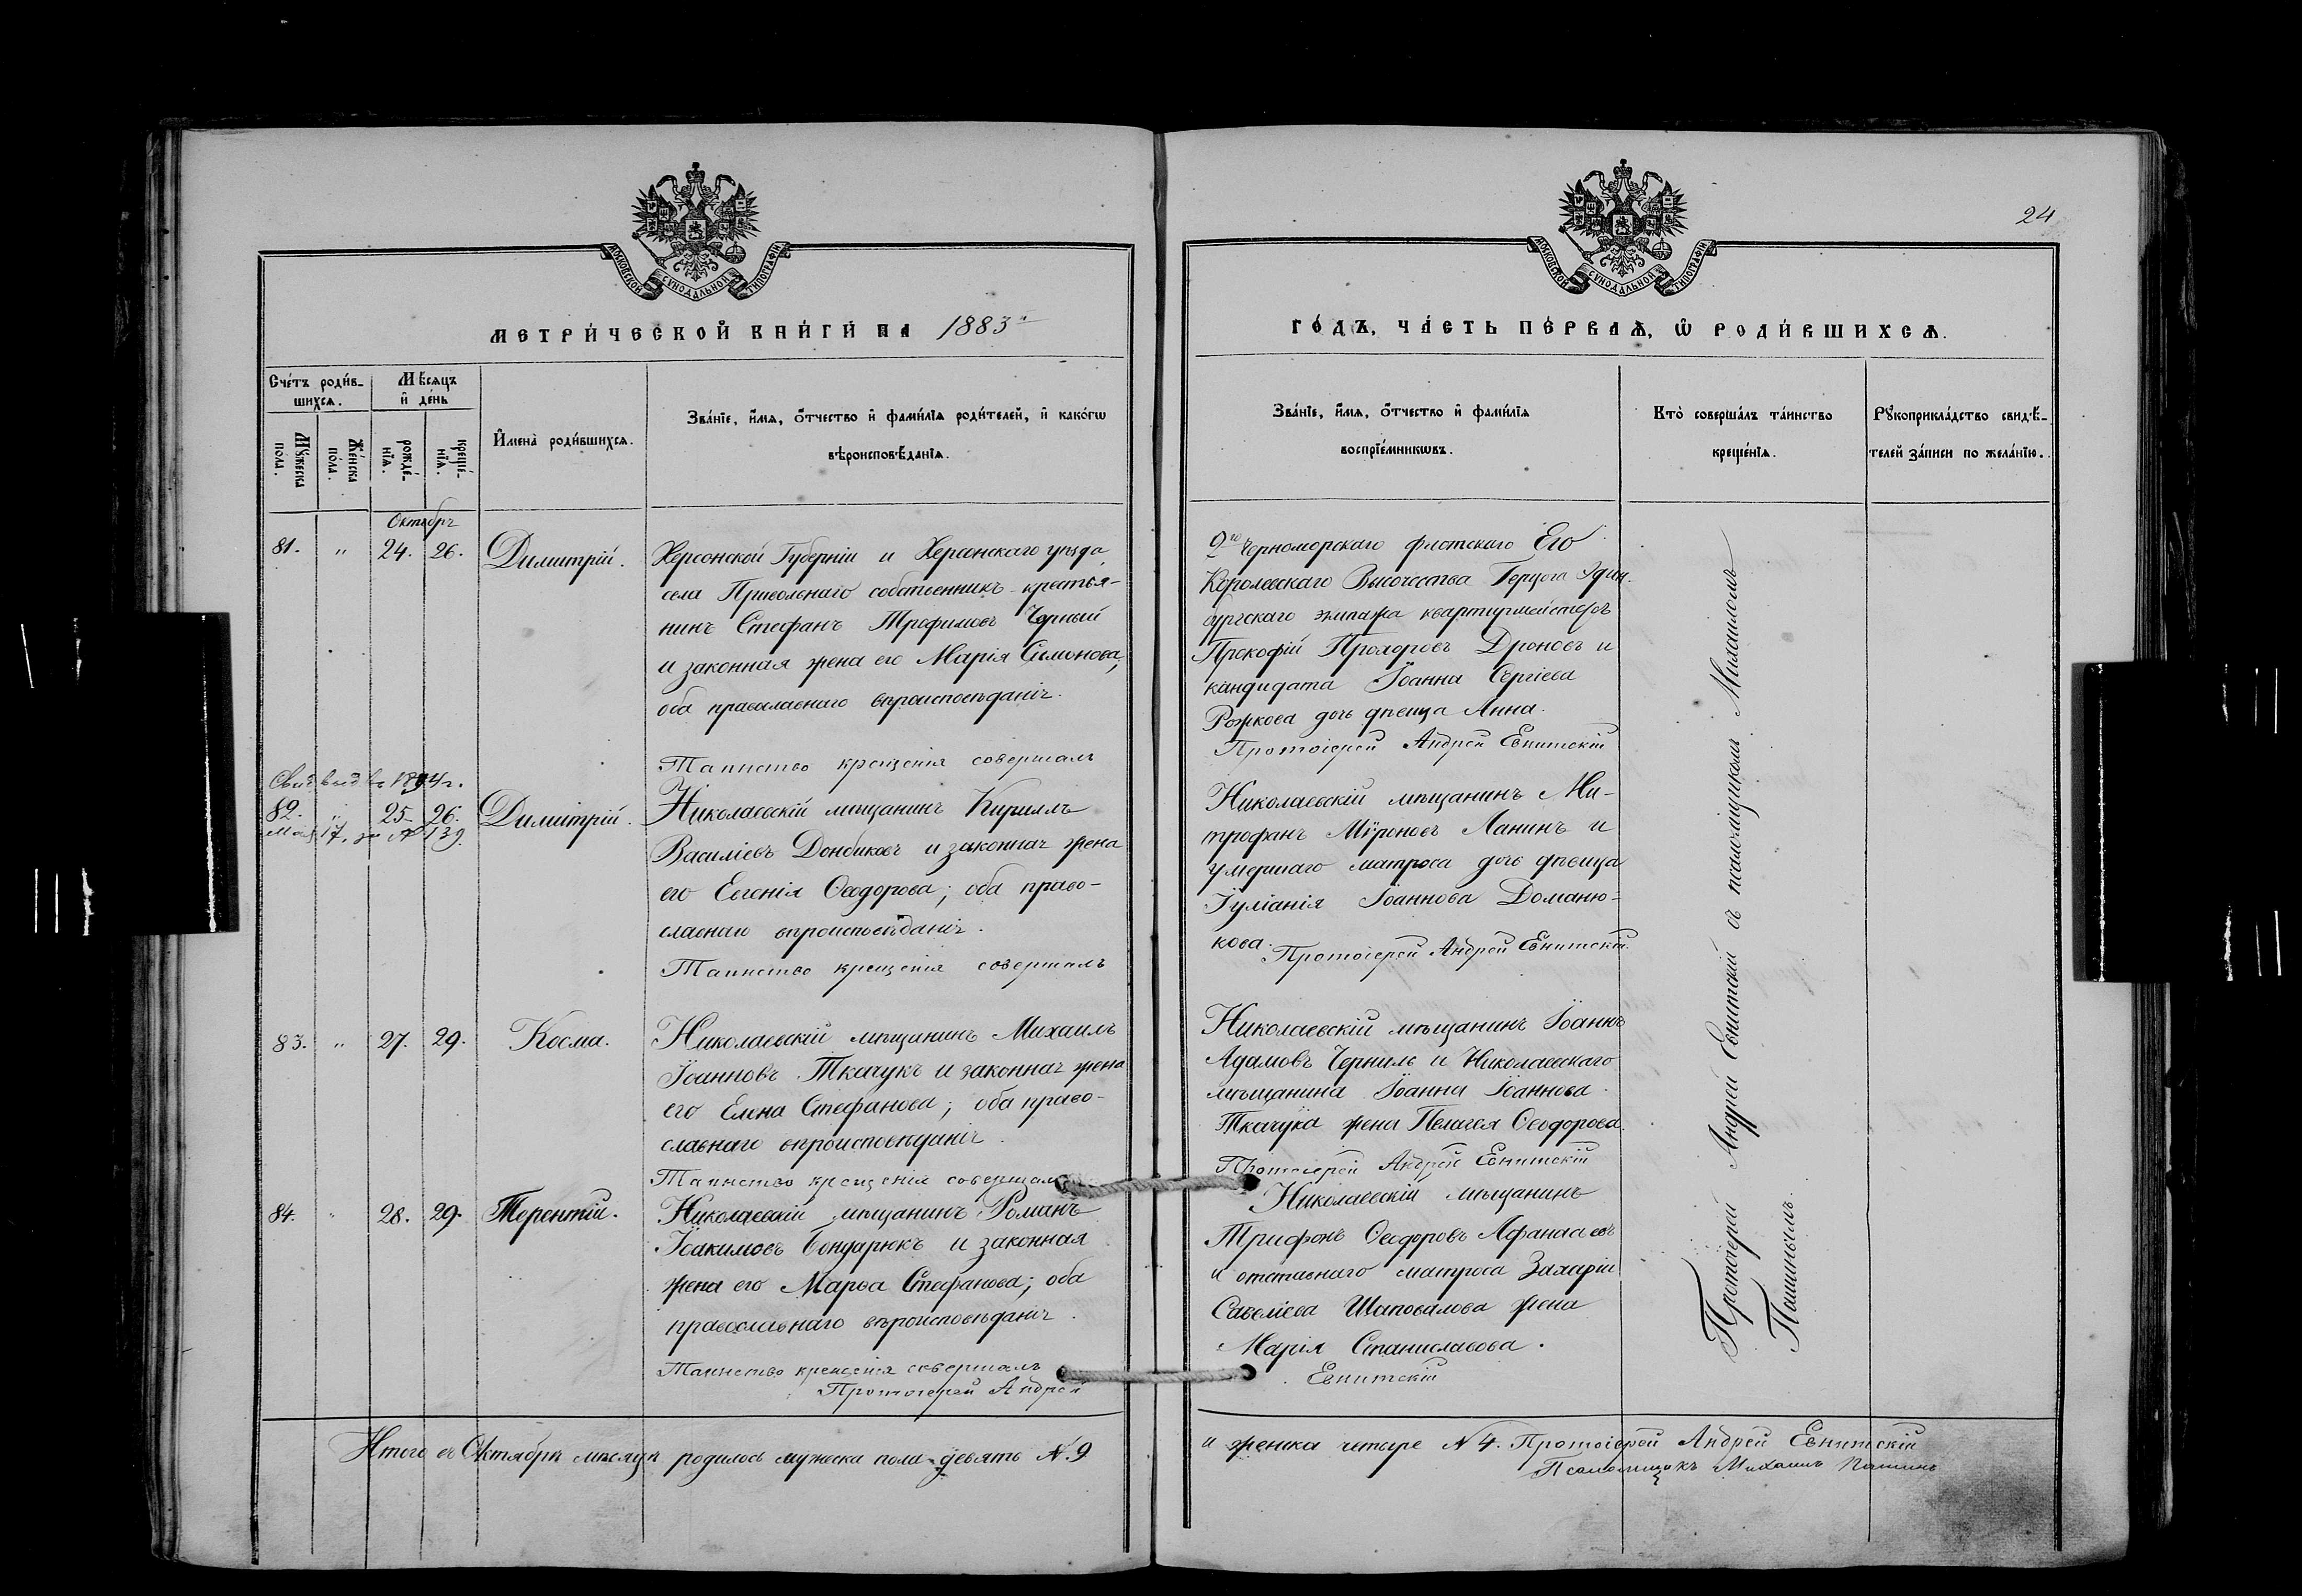 24
МОСКОВСКОЙ СѴНОДАЛЬНОЙ ТИПОГРАФІИ
МОСКОВСКОЙ СѴНОДАЛЬНОЙ ТИПОГРАФІИ
МЕТРИ́ЧЕСКОЙ КНИ́ГИ НА 1883й
ГО́ДЪ, ЧА́СТЬ ПЕ́РВАѦ, Ѡ҆ РОДИ́ВШИХСѦ.
Сче́тъ роди́в-
шихсѧ.
Мѣ́сѧцъ
и҆ де́нь
Мꙋ́жеска
по́ла.
Же́нска
по́ла.
рожде́-
нїѧ.
креще́-
нїѧ.
И҆мена̀ роди́вшихсѧ.
Зва́нїе, и҆́мѧ, ѻ҆́тчество и҆ фами́лїѧ роди́телей, и҆ како́гѡ
вѣроисповѣ́данїѧ.
Зва́нїе, и҆́мѧ, ѻ҆́тчество и҆ фами́лїѧ
воспрїе́мникѡвъ.
Кто̀ соверша́лъ та́инство
креще́нїѧ.
Рꙋкоприкла́дство свидѣ́-
телей за́писи по жела́нїю.
Октябрь
81. " 24. 26. Димитрій.
Херсонской Губерніи и Херсонскаго уѣзда
села Привольнаго собственникъ-крестья-
нинъ Стефанъ Трофимовъ Черный
и законная жена его Марія Симонова,
оба православнаго вѣроисповѣданія.
Таинство крещенія совершалъ
9го Черноморскаго флотскаго Его
Королевскаго Высочества Герцога Эдин-
бургскаго экипажа квартирмейстеръ
Прокофій Прохоровъ Дроновъ и
кандидата Іоанна Сергіева
Рожкова дочь дѣвица Анна.
Протоіерей Андрей Евнитскій
Свид. выд. въ 1894 г.
82. " 25. 26. Димитрій.
Мая 17. за № 139.
Николаевскій мѣщанинъ Кириллъ
Василіевъ Донбиковъ и законная жена
его Евгенія Ѳеодорова; оба право-
славнаго вѣроисповѣданія.
Таинство крещенія совершалъ
Николаевскій мѣщанинъ Ми-
трофанъ Мѵроновъ Ланинъ и
умершаго матроса дочь дѣвица
Іуліанія Іоаннова Доманю-
кова. Протоіерей Андрей Евнитскій.
83. " 27. 29. Косма.
Николаевскій мѣщанинъ Михаилъ
Іоанновъ Ткачукъ и законная жена
его Елена Стефанова; оба право-
славнаго вѣроисповѣданія.
Таинство крещенія совершалъ
Николаевскій мѣщанинъ Іоаннъ
Адамовъ Черниль и Николаевскаго
мѣщанина Іоанна Іоаннова
Ткачука жена Пелагея Ѳеодорова.
Протоіерей Андрей Евнитскій
84. " 28. 29. Терентій.
Николаевскій мѣщанинъ Романъ
Іоакимовъ Бондарюкъ и законная
жена его Марѳа Стефанова; оба
православнаго вѣроисповѣданія.
Таинство крещенія совершалъ
Протоіерей Андрей
Николаевскій мѣщанинъ
Трифонъ Ѳеодоровъ Афанасьевъ
и отставнаго матроса Захаріи
Савеліева Шаповалова жена
Марія Станиславова.
Евнитскій
Протоіерей Андрей Евнитскій съ псаломщикомъ Михаиломъ
Пашинымъ.
Итого въ Октябрѣ мѣсяцѣ родилось мужеска пола девять № 9
и женска четыре № 4. Протоіерей Андрей Евнитскій
Псаломщикъ Михаилъ Пашинъ